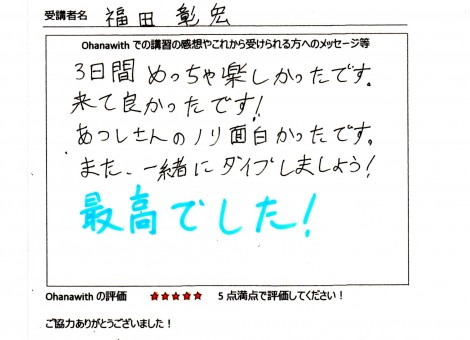 受講者名 福田 彰宏
Ohanawith での講習の感想やこれから受けられる方へのメッセージ等
3日間 めっちゃ楽しかったです。
来て良かったです!
あつしさんのノリ面白かったです。
また、一緒にダイブしましょう!
最高でした!
Ohanawith の評価 ★★★★★ 5 点満点で評価してください！
ご協力ありがとうございました！